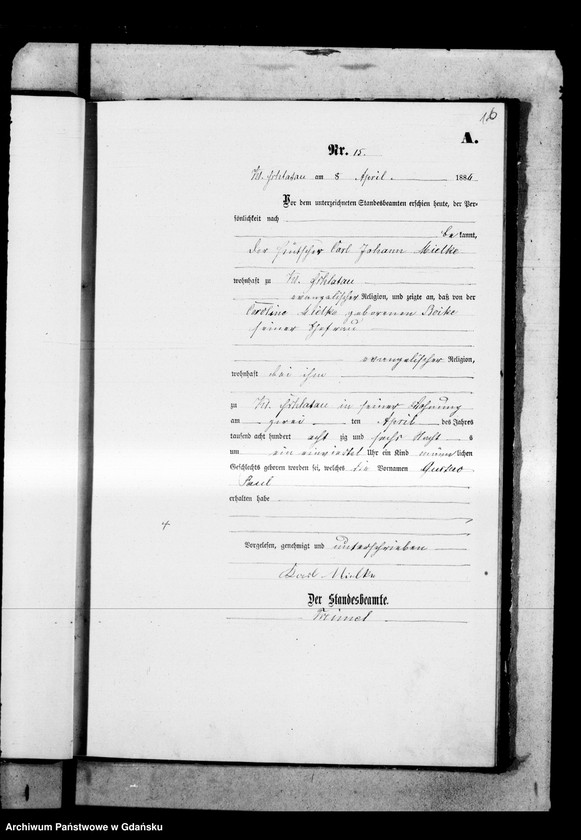 116
A.
Nr. 15.
Kl. Schlatau am 8 April 1886
Vor dem unterzeichneten Standesbeamten erschien heute, der Per-
sönlichkeit nach
be kannt,
der Carl Johann Mielke
wohnhaft zu Kl. Schlatau
evangelischer Religion, und zeigte an, daß von der
Caroline Mielke geborenen Reike
seiner Ehefrau
evangelischer Religion,
wohnhaft bei ihm
zu Kl. Schlatau in seiner Wohnung
am zwei ten April des Jahres
tausend acht hundert acht zig und sechs Nachts
um ein einviertel Uhr ein Kind männlichen
Geschlechts geboren worden sei, welches die Vornamen Gustav
Paul
erhalten habe
Vorgelesen, genehmigt und unterschrieben
Karl Mielke
Der Standesbeamte.
Archiwum Państwowe w Gdańsku